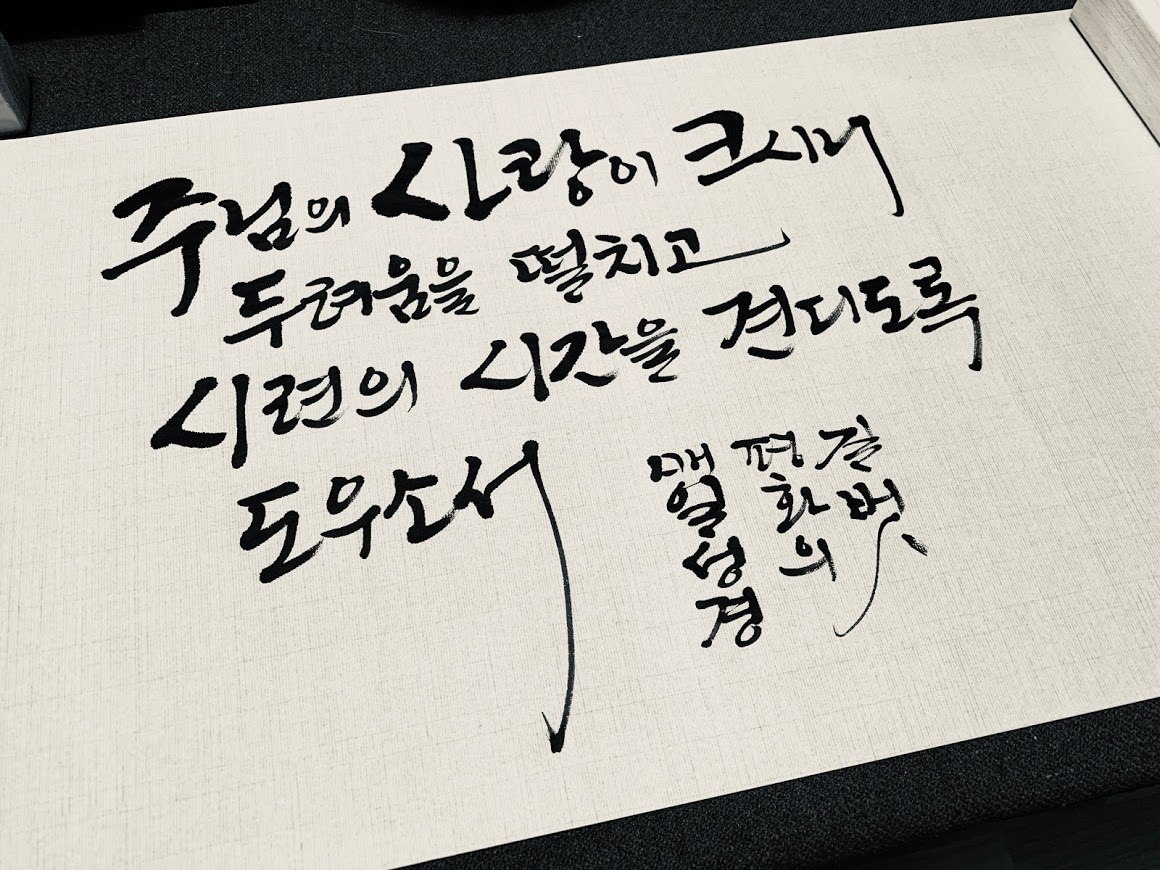 주님의 사랑이 크시니
두려움을 떨치고
시련의 시간을 견디도록
도우소서
매일성경
평화의
길벗